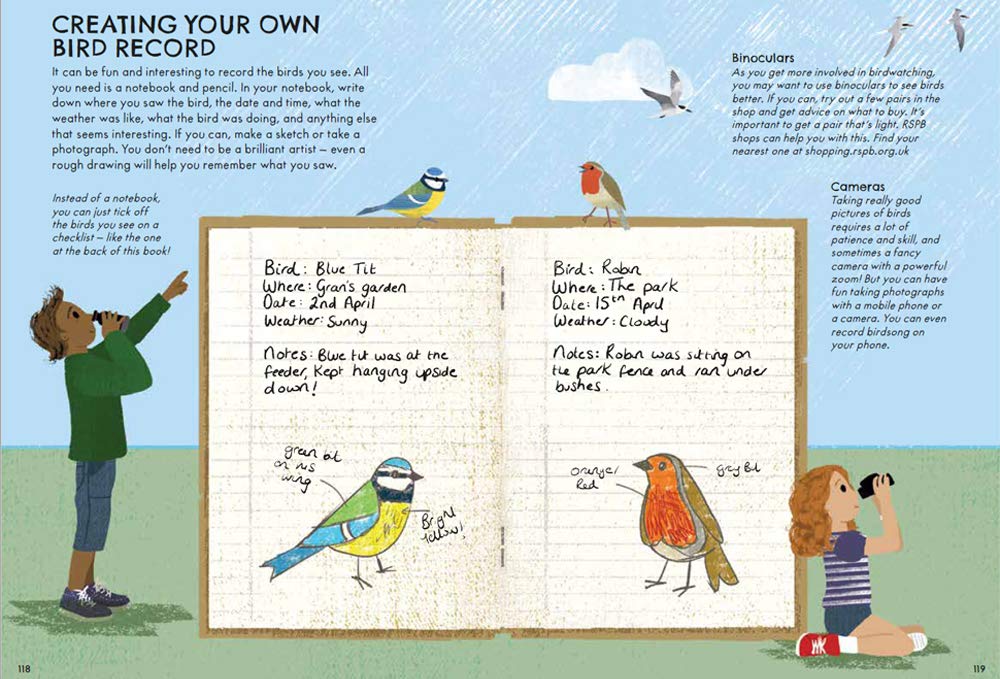 CREATING YOUR OWN
BIRD RECORD
It can be fun and interesting to record the birds you see. All
you need is a notebook and pencil. In your notebook, write
down where you saw the bird, the date and time, what the
weather was like, what the bird was doing, and anything else
that seems interesting. If you can, make a sketch or take a
photograph. You don't need to be a brilliant artist – even a
rough drawing will help you remember what you saw.
Instead of a notebook,
you can just tick off
the birds you see on a
checklist – like the one
at the back of this book!
Binoculars
As you get more involved in birdwatching,
you may want to use binoculars to see birds
better. If you can, try out a few pairs in the
shop and get advice on what to buy. It's
important to get a pair that's light. RSPB
shops can help you with this. Find your
nearest one at shopping.rspb.org.uk
Cameras
Taking really good
pictures of birds
requires a lot of
patience and skill, and
sometimes a fancy
camera with a powerful
zoom! But you can have
fun taking photographs
with a mobile phone or
a camera. You can even
record birdsong on
your phone.
Bird: Blue Tit
Where: Gran's garden
Date: 2nd April
Weather: Sunny
Notes: Blue tit was at the
feeder, Kept hanging upside
down!
green bit
on his
wing
Bright
Yellow!
Bird: Robin
Where: The park
Date: 15th April
Weather: Cloudy
Notes: Robin was sitting on
the park fence and ran under
bushes.
orange/
Red
grey Bit
118
119